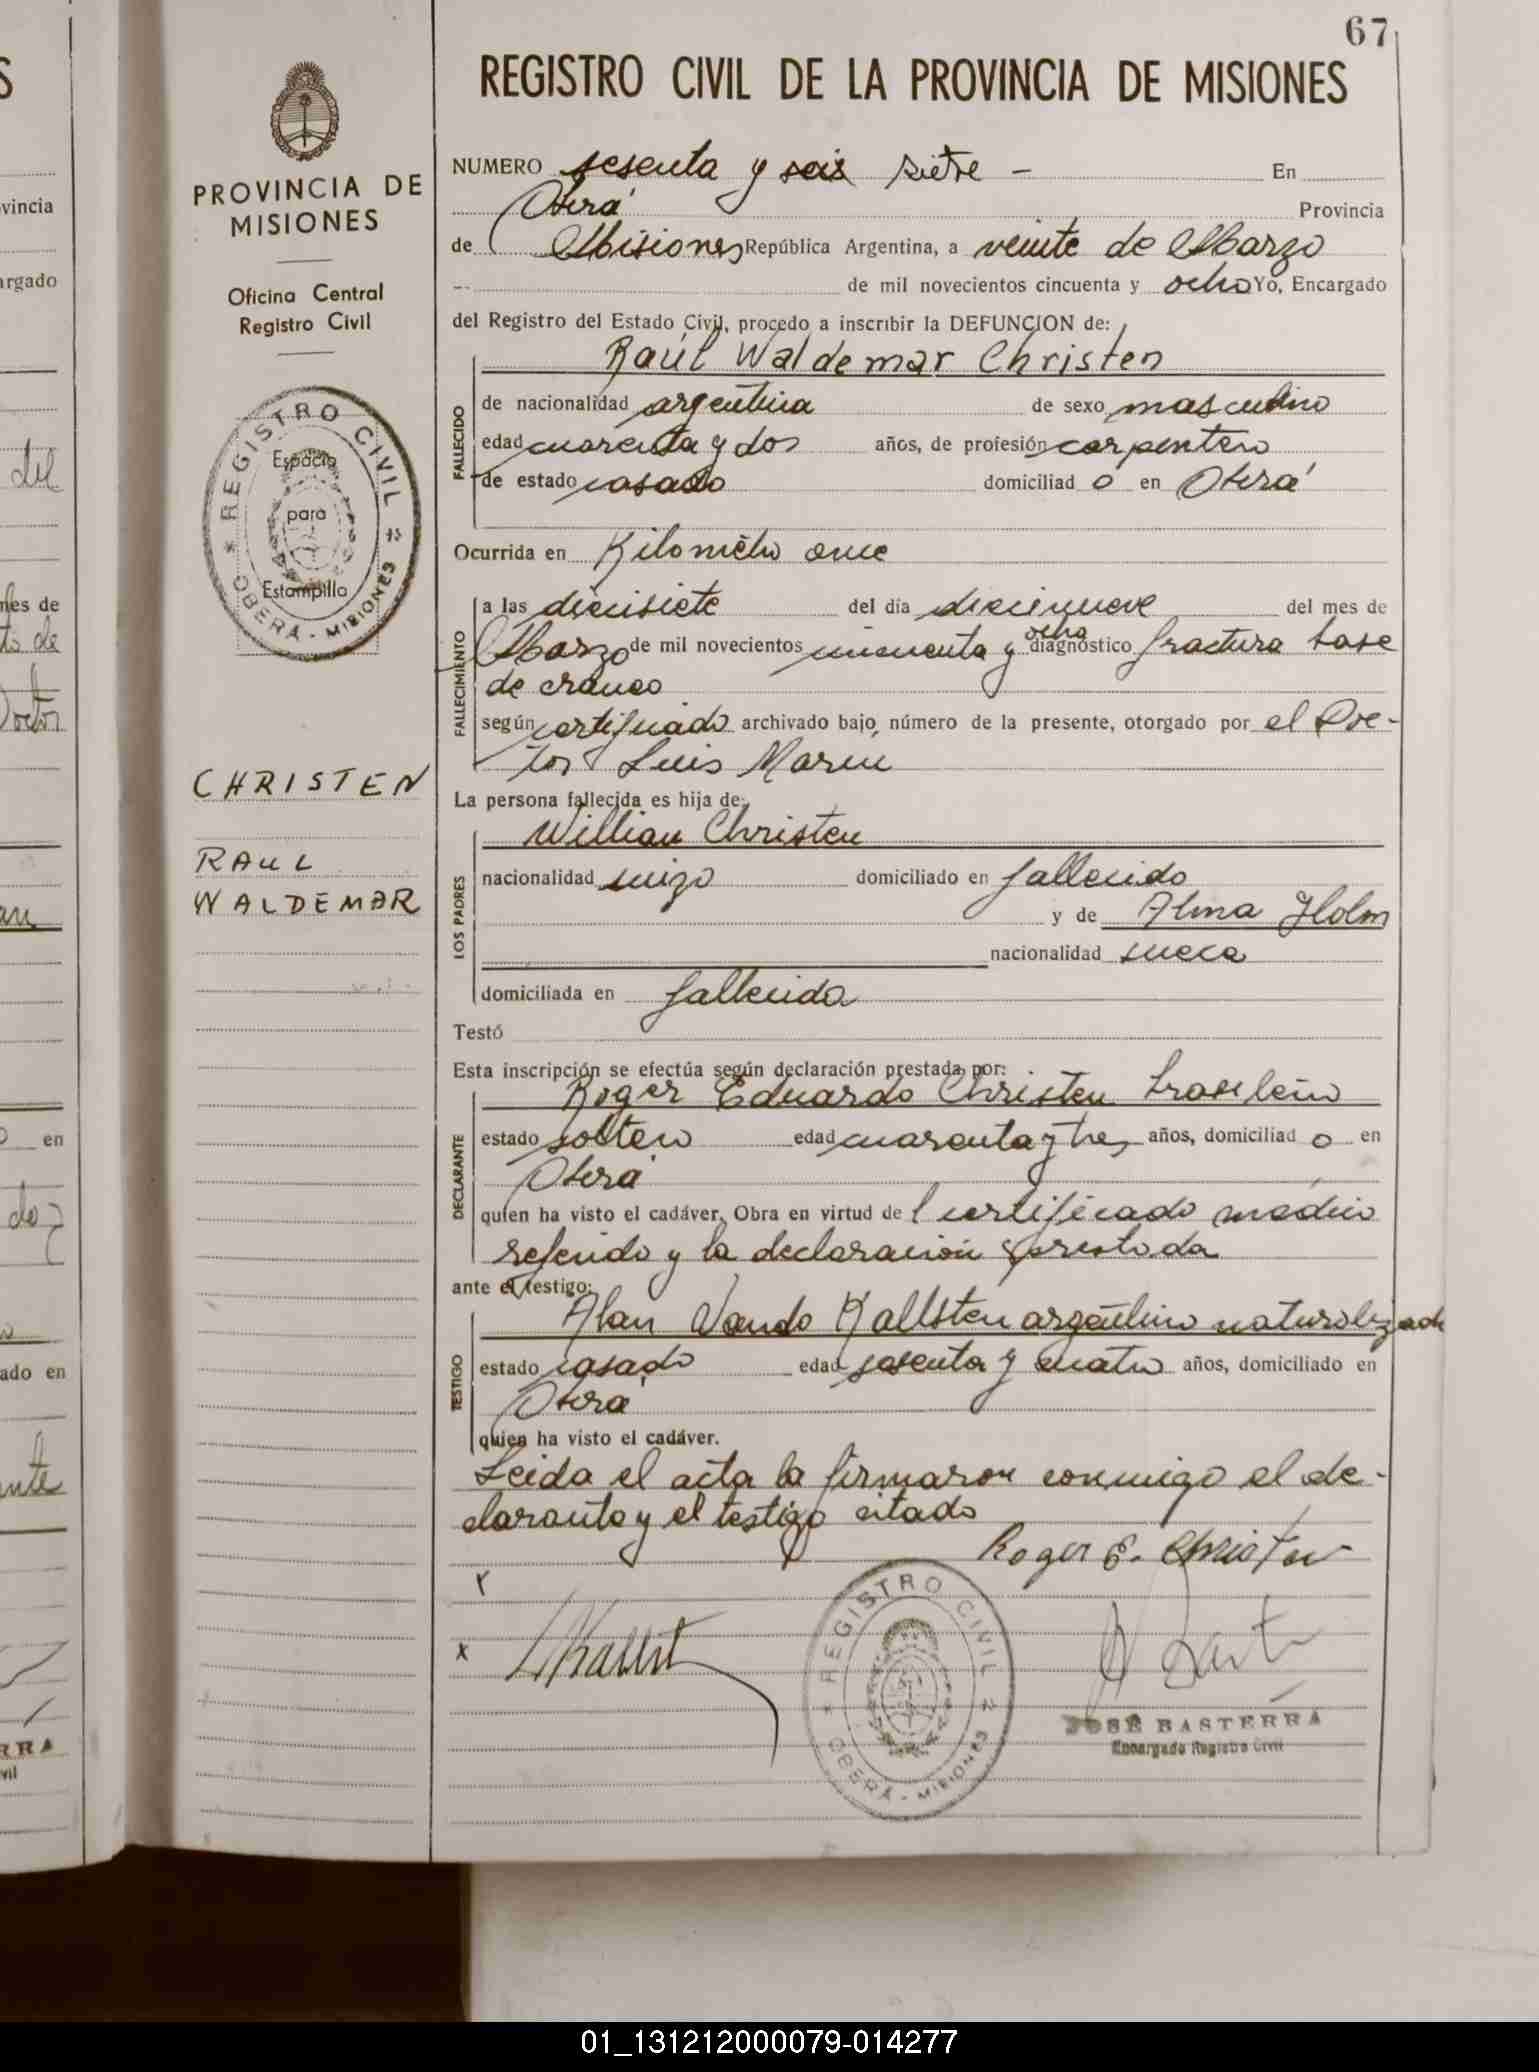 67
REGISTRO CIVIL DE LA PROVINCIA DE MISIONES
PROVINCIA DE
MISIONES
Oficina Central
Registro Civil
REGISTRO CIVIL
Espacio
para
Estampilla
OBERÁ - MISIONES
CHRISTEN
RAUL
WALDEMAR
NUMERO sesenta y seis siete - En
Oberá Provincia
de Misiones República Argentina, a veinte de Marzo
-- de mil novecientos cincuenta y ocho Yo, Encargado
del Registro del Estado Civil, procedo a inscribir la DEFUNCION de:
Raúl Waldemar Christen
FALLECIDO
de nacionalidad argentina de sexo masculino
edad cuarenta y dos años, de profesión carpintero
de estado casado domiciliad o en Oberá
Ocurrida en Kilometro once
FALLECIMIENTO
a las diecisiete del día diecinueve del mes de
Marzo de mil novecientos cincuenta y ocho diagnóstico fractura base
de craneo
según certificado archivado bajo número de la presente, otorgado por el Doc-
tor Luis Marin
La persona fallecida es hija de:
LOS PADRES
Willian Christen
nacionalidad suizo domiciliado en fallecido
y de Alma Holm
nacionalidad sueca
domiciliada en fallecida
Testó
Esta inscripción se efectúa según declaración prestada por:
DECLARANTE
Roger Eduardo Christen brasileño
estado soltero edad cuarenta y tres años, domiciliad o en
Oberá
quien ha visto el cadáver. Obra en virtud de l certificado médico
referido y la declaración prestada
ante el testigo:
TESTIGO
Alan Vando Kallsten argentino naturalizado
estado casado edad sesenta y cuatro años, domiciliado en
Oberá
quien ha visto el cadáver.
Leida el acta la firmaron conmigo el de-
clarante y el testigo citado
Roger E. Christen
REGISTRO CIVIL
OBERÁ - MISIONES
JOSÉ BASTERRA
Encargado Registro Civil
01_131212000079-014277